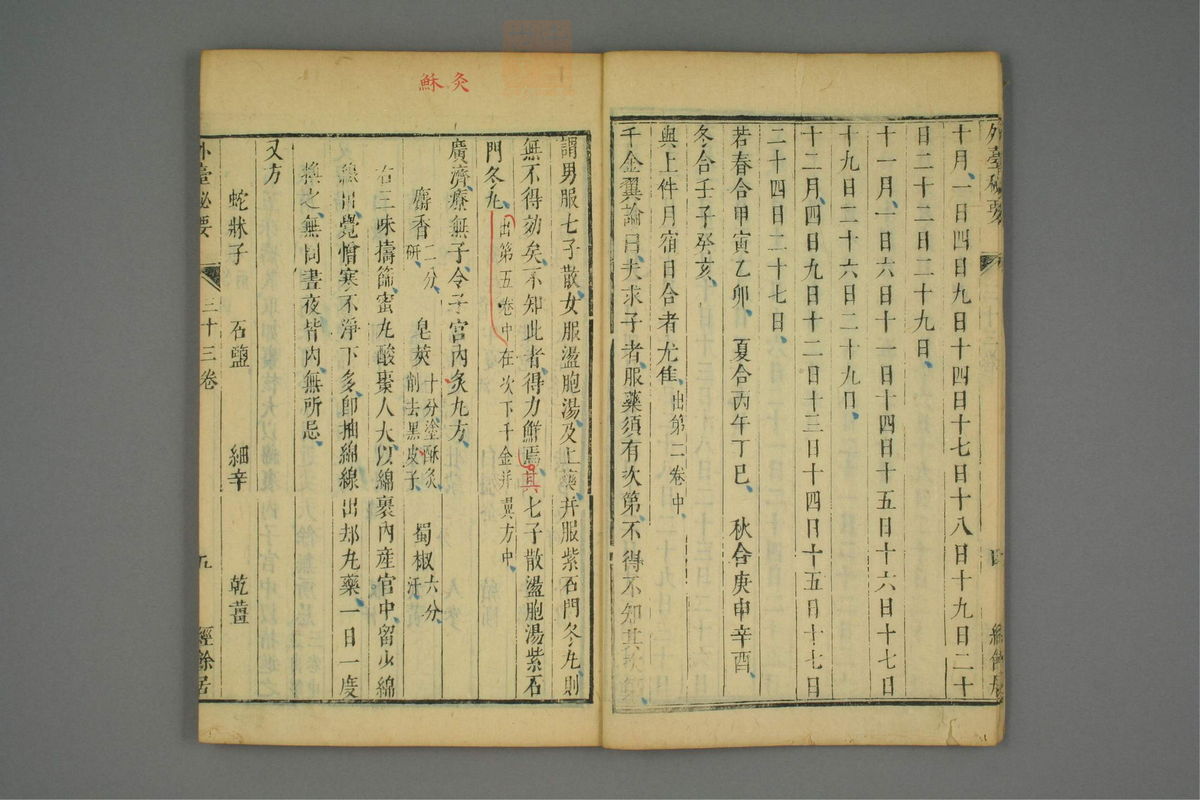 外臺秘要
四
經餘居
十月一日四日九日十四日十七日十八日十九日二十
日二十二日二十九日
十一月一日六日十一日十四日十五日十六日十七日
十九日二十六日二十九日
十二月四日九日十二日十三日十四日十五日十七日
二十四日二十七日
若春合甲寅乙卯 夏合丙午丁巳 秋合庚申辛酉
冬合壬子癸亥
與上件月宿日合者尤佳出第二卷中
千金翼論曰夫求子者服藥須有次第不得不知其次第
謂男服七子散女服盪胞湯及上藥并服紫石門冬丸則
無不得効矣不知此者得力鮮焉其七子散盪胞湯紫石
門冬丸出第五卷中在次下千金并翼方中
廣濟療無子令子宮內灸丸方
麝香二分研 皂莢十分塗酥灸削去黑皮子 蜀椒六分汗
右三味擣篩蜜丸酸棗人大以綿裹內產宮中留少綿
線出覺憎寒不淨下多卽抽綿線出却丸藥一日一度
換之無問晝夜皆內無所忌
又方
蛇牀子 石鹽 細辛 乾薑
外臺秘要
三十三卷
五
經餘居
灸
穌